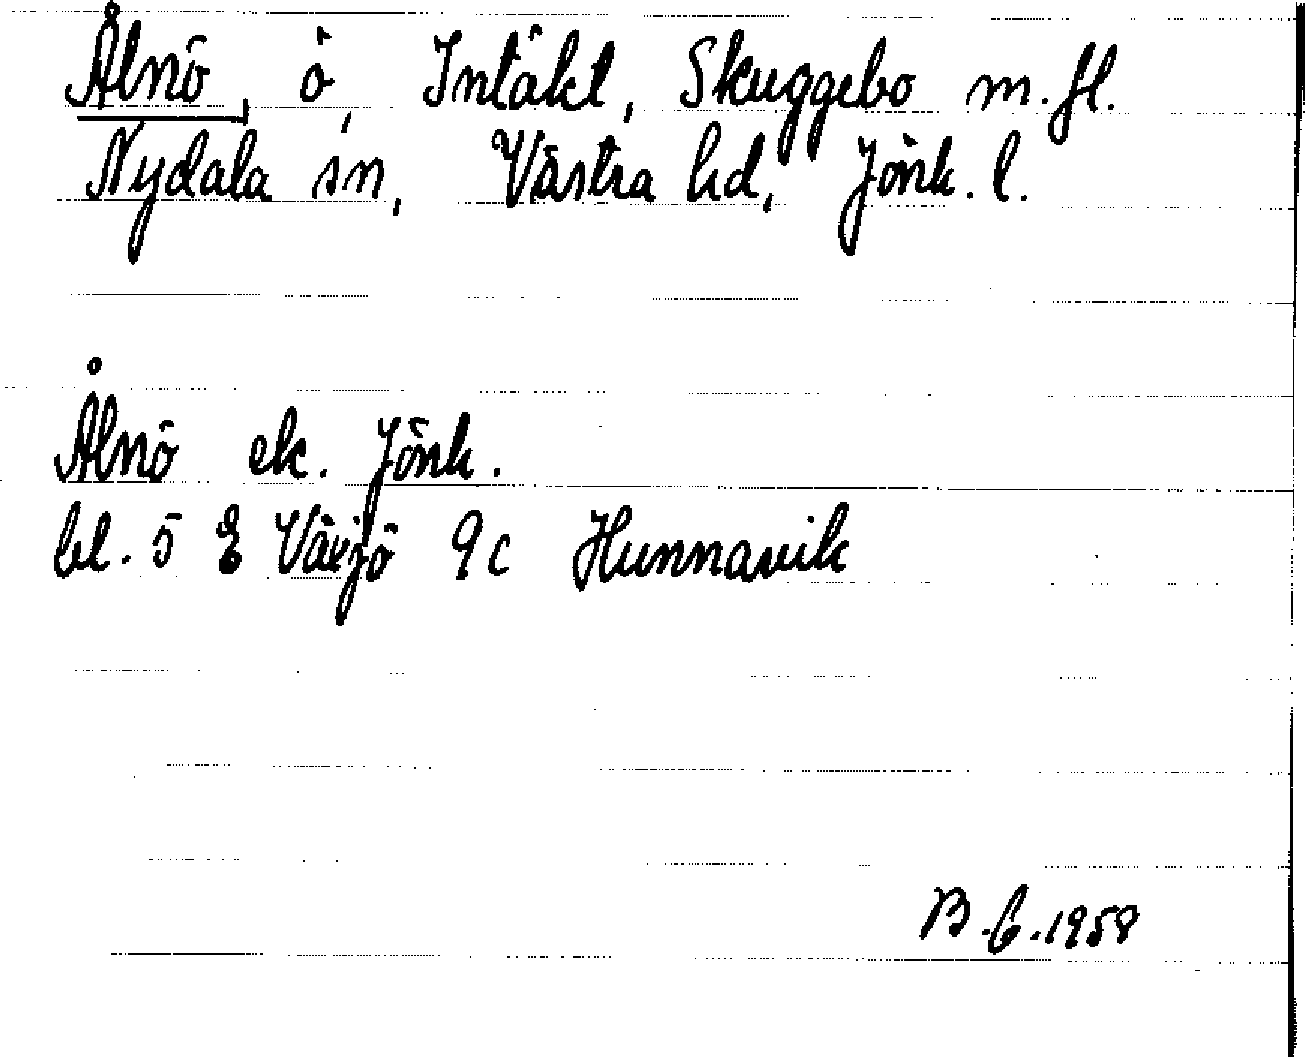 Ålnö, ö, Intäkt, Skuggebo m. fl.
Nydala sn, Västra hd, Jönk. l.
Ålnö ek. Jönk.
bl. 5 E Växjö 9c Hunnavik
B.G.1958